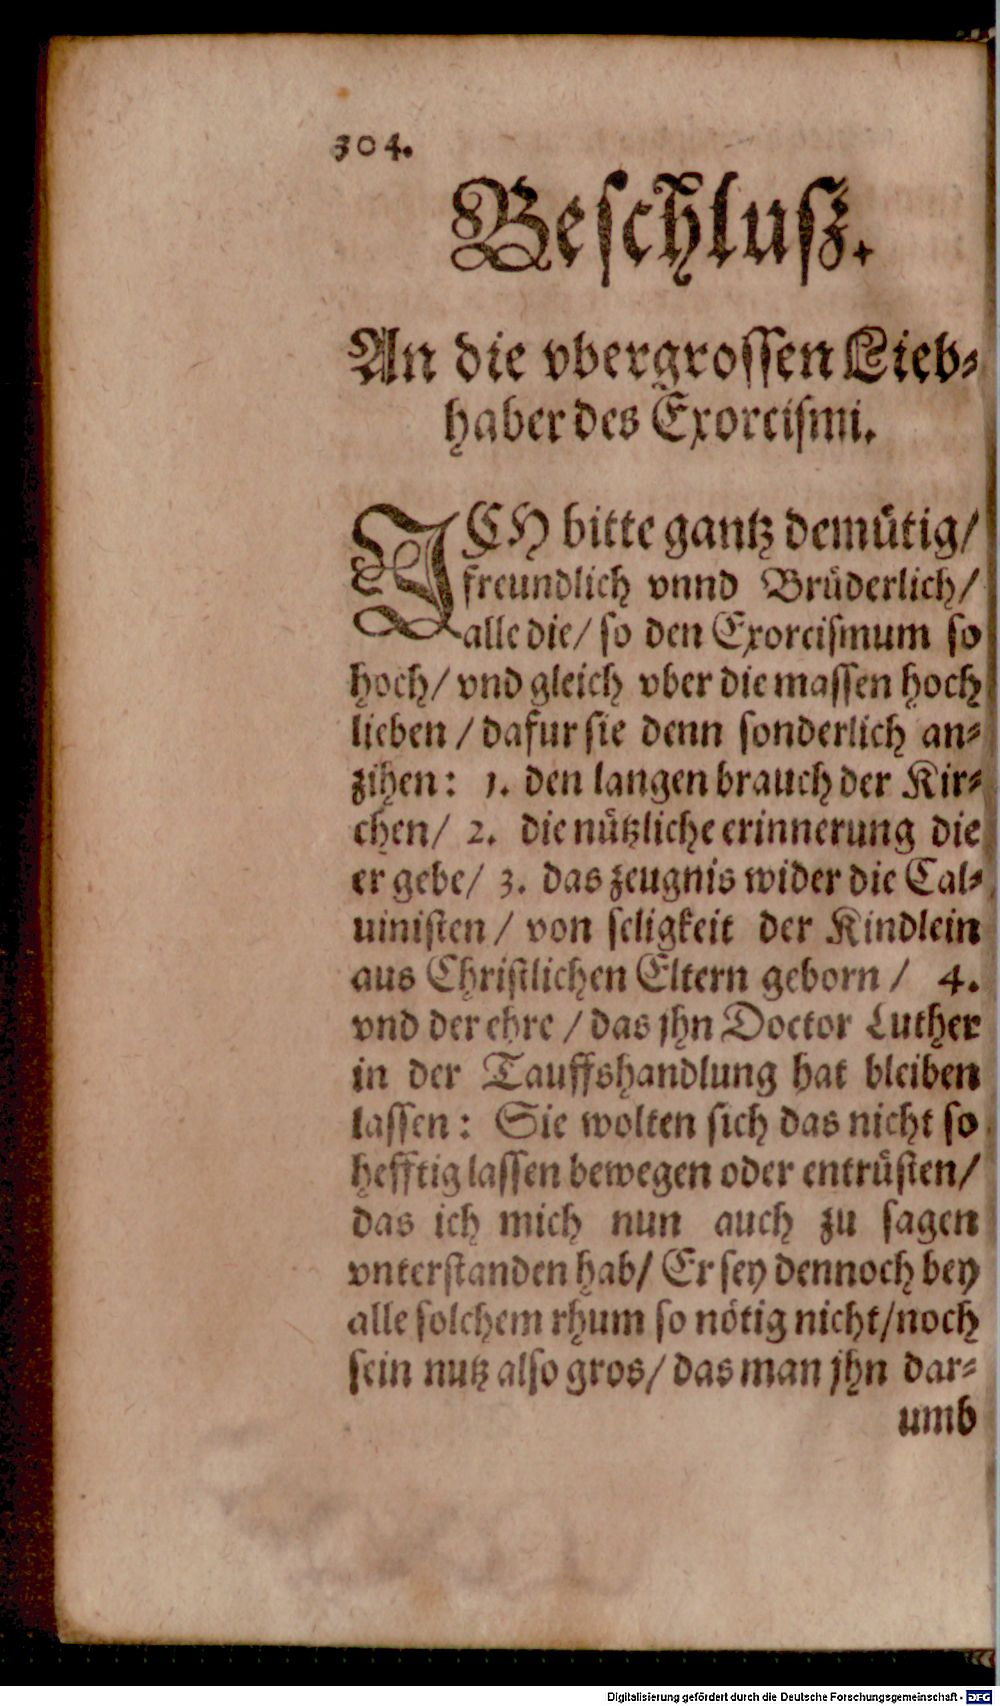 304.
Beschlusz.
An die vbergrossen Lieb-
haber des Exorcismi.
ICH bitte gantz demütig/
freundlich vnnd Brüderlich/
alle die/ so den Exorcismum so
hoch/ vnd gleich vber die massen hoch
lieben / dafur sie denn sonderlich an-
zihen: 1. den langen brauch der Kir-
chen/ 2. die nützliche erinnerung die
er gebe/ 3. das zeugnis wider die Cal-
uinisten / von seligkeit der Kindlein
aus Christlichen Eltern geborn / 4.
vnd der ehre / das jhn Doctor Luther
in der Tauffshandlung hat bleiben
lassen: Sie wolten sich das nicht so
hefftig lassen bewegen oder entrüsten/
das ich mich nun auch zu sagen
vnterstanden hab/ Er sey dennoch bey
alle solchem rhum so nötig nicht/ noch
sein nutz also gros/ das man jhn dar-
umb
Digitalisierung gefördert durch die Deutsche Forschungsgemeinschaft - DFG